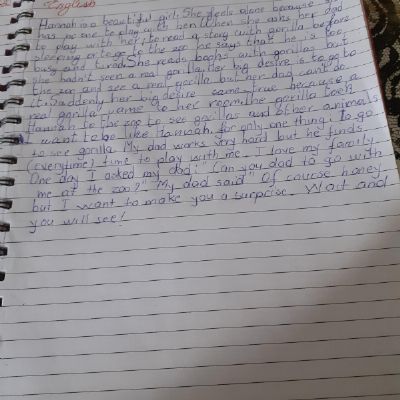 English
Hannah is a beautiful girl. She feels alone because she
has no one to play with her. When she asks her dad
to play with her, to read a story with gorilla before
sleeping or to go to the zoo he says that he is too
busy and tired. She reads books with gorillas but
she hadn't seen a real gorilla. Her big desire is to go to
the zoo and see a real gorilla but her dad can't do
it. Suddenly her big desire came true because a
real gorilla came to her room. The gorilla took
Hannah to the zoo to see gorillas and other animals
I want to be like Hannah, for only one thing: To go
to see gorilla. My dad works very hard but he finds
(everytime) time to play with me. I love my family.
One day I asked my dad: "Can you dad to go with
me at the zoo?" My dad said" Of cource honey
but I want to make you a surprise. Wait and
you will see!